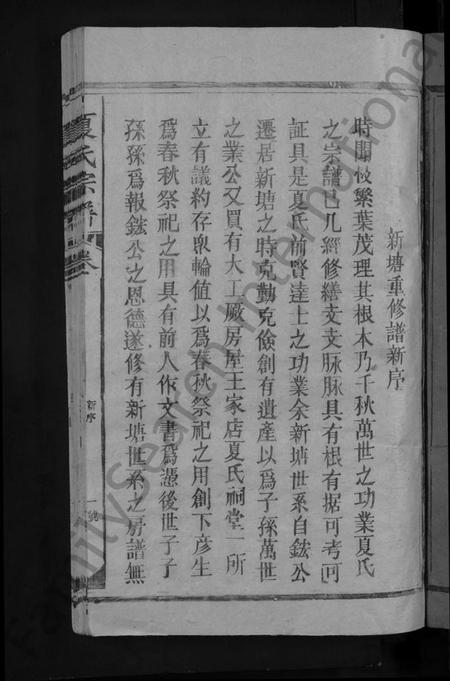 新塘重修譜新序
時聞枝繁葉茂理其根本乃千秋萬世之功業夏氏
之宗譜已几經修繕支支脉脉具有根有据可考可
証具是夏氏前賢達士之功業余新塘世系自鉉公
遷居新塘之時克勤克儉創有遺產以爲子孫萬世
之業公又買有大工厰房屋王家店夏氏祠堂一所
立有議約存衆輪值以爲春秋祭祀之用創下彦生
爲春秋祭祀之用具有前人作文書爲憑後世子子
孫孫爲報鉉公之恩德遂修有新塘世系之房譜無
夏氏宗譜
卷
新序
一號
FamilySearch International